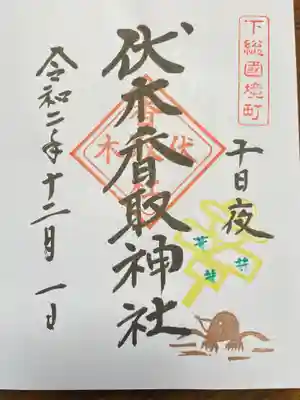 下総國境町
十日夜
伏木香取神社
伏木香
令和二年十二月一日